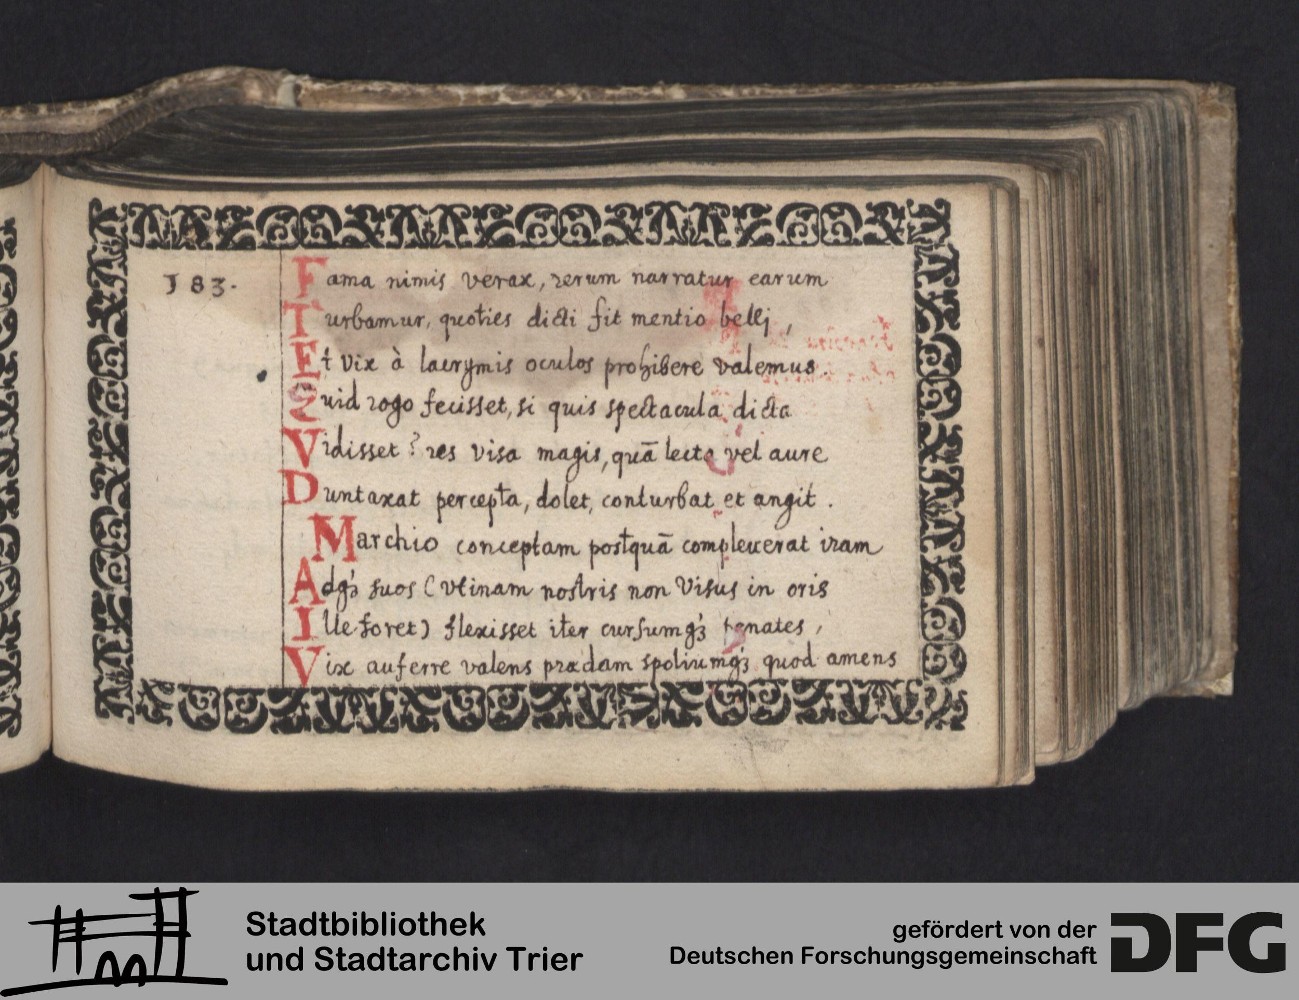 183.
Fama nimis verax, rerum narratur earum
Turbamur, quoties dicti fit mentio bellj,
Et vix à lacrymis oculos prohibere valemus.
Quid rogo fecisset, si quis spectacula dicta
Vidisset? res visa magis, quā lecta vel aure
Duntaxat percepta, dolet, conturbat et angit.
Marchio conceptam postquā complevērat iram
Adqꝫ suos (vtinam nostris non Visus in oris
Ille foret) flexisset iter cursumqꝫ penates,
Vix auferre valens prædam spoliumqꝫ quod amens
Stadtbibliothek
und Stadtarchiv Trier
gefördert von der
Deutschen Forschungsgemeinschaft
DFG